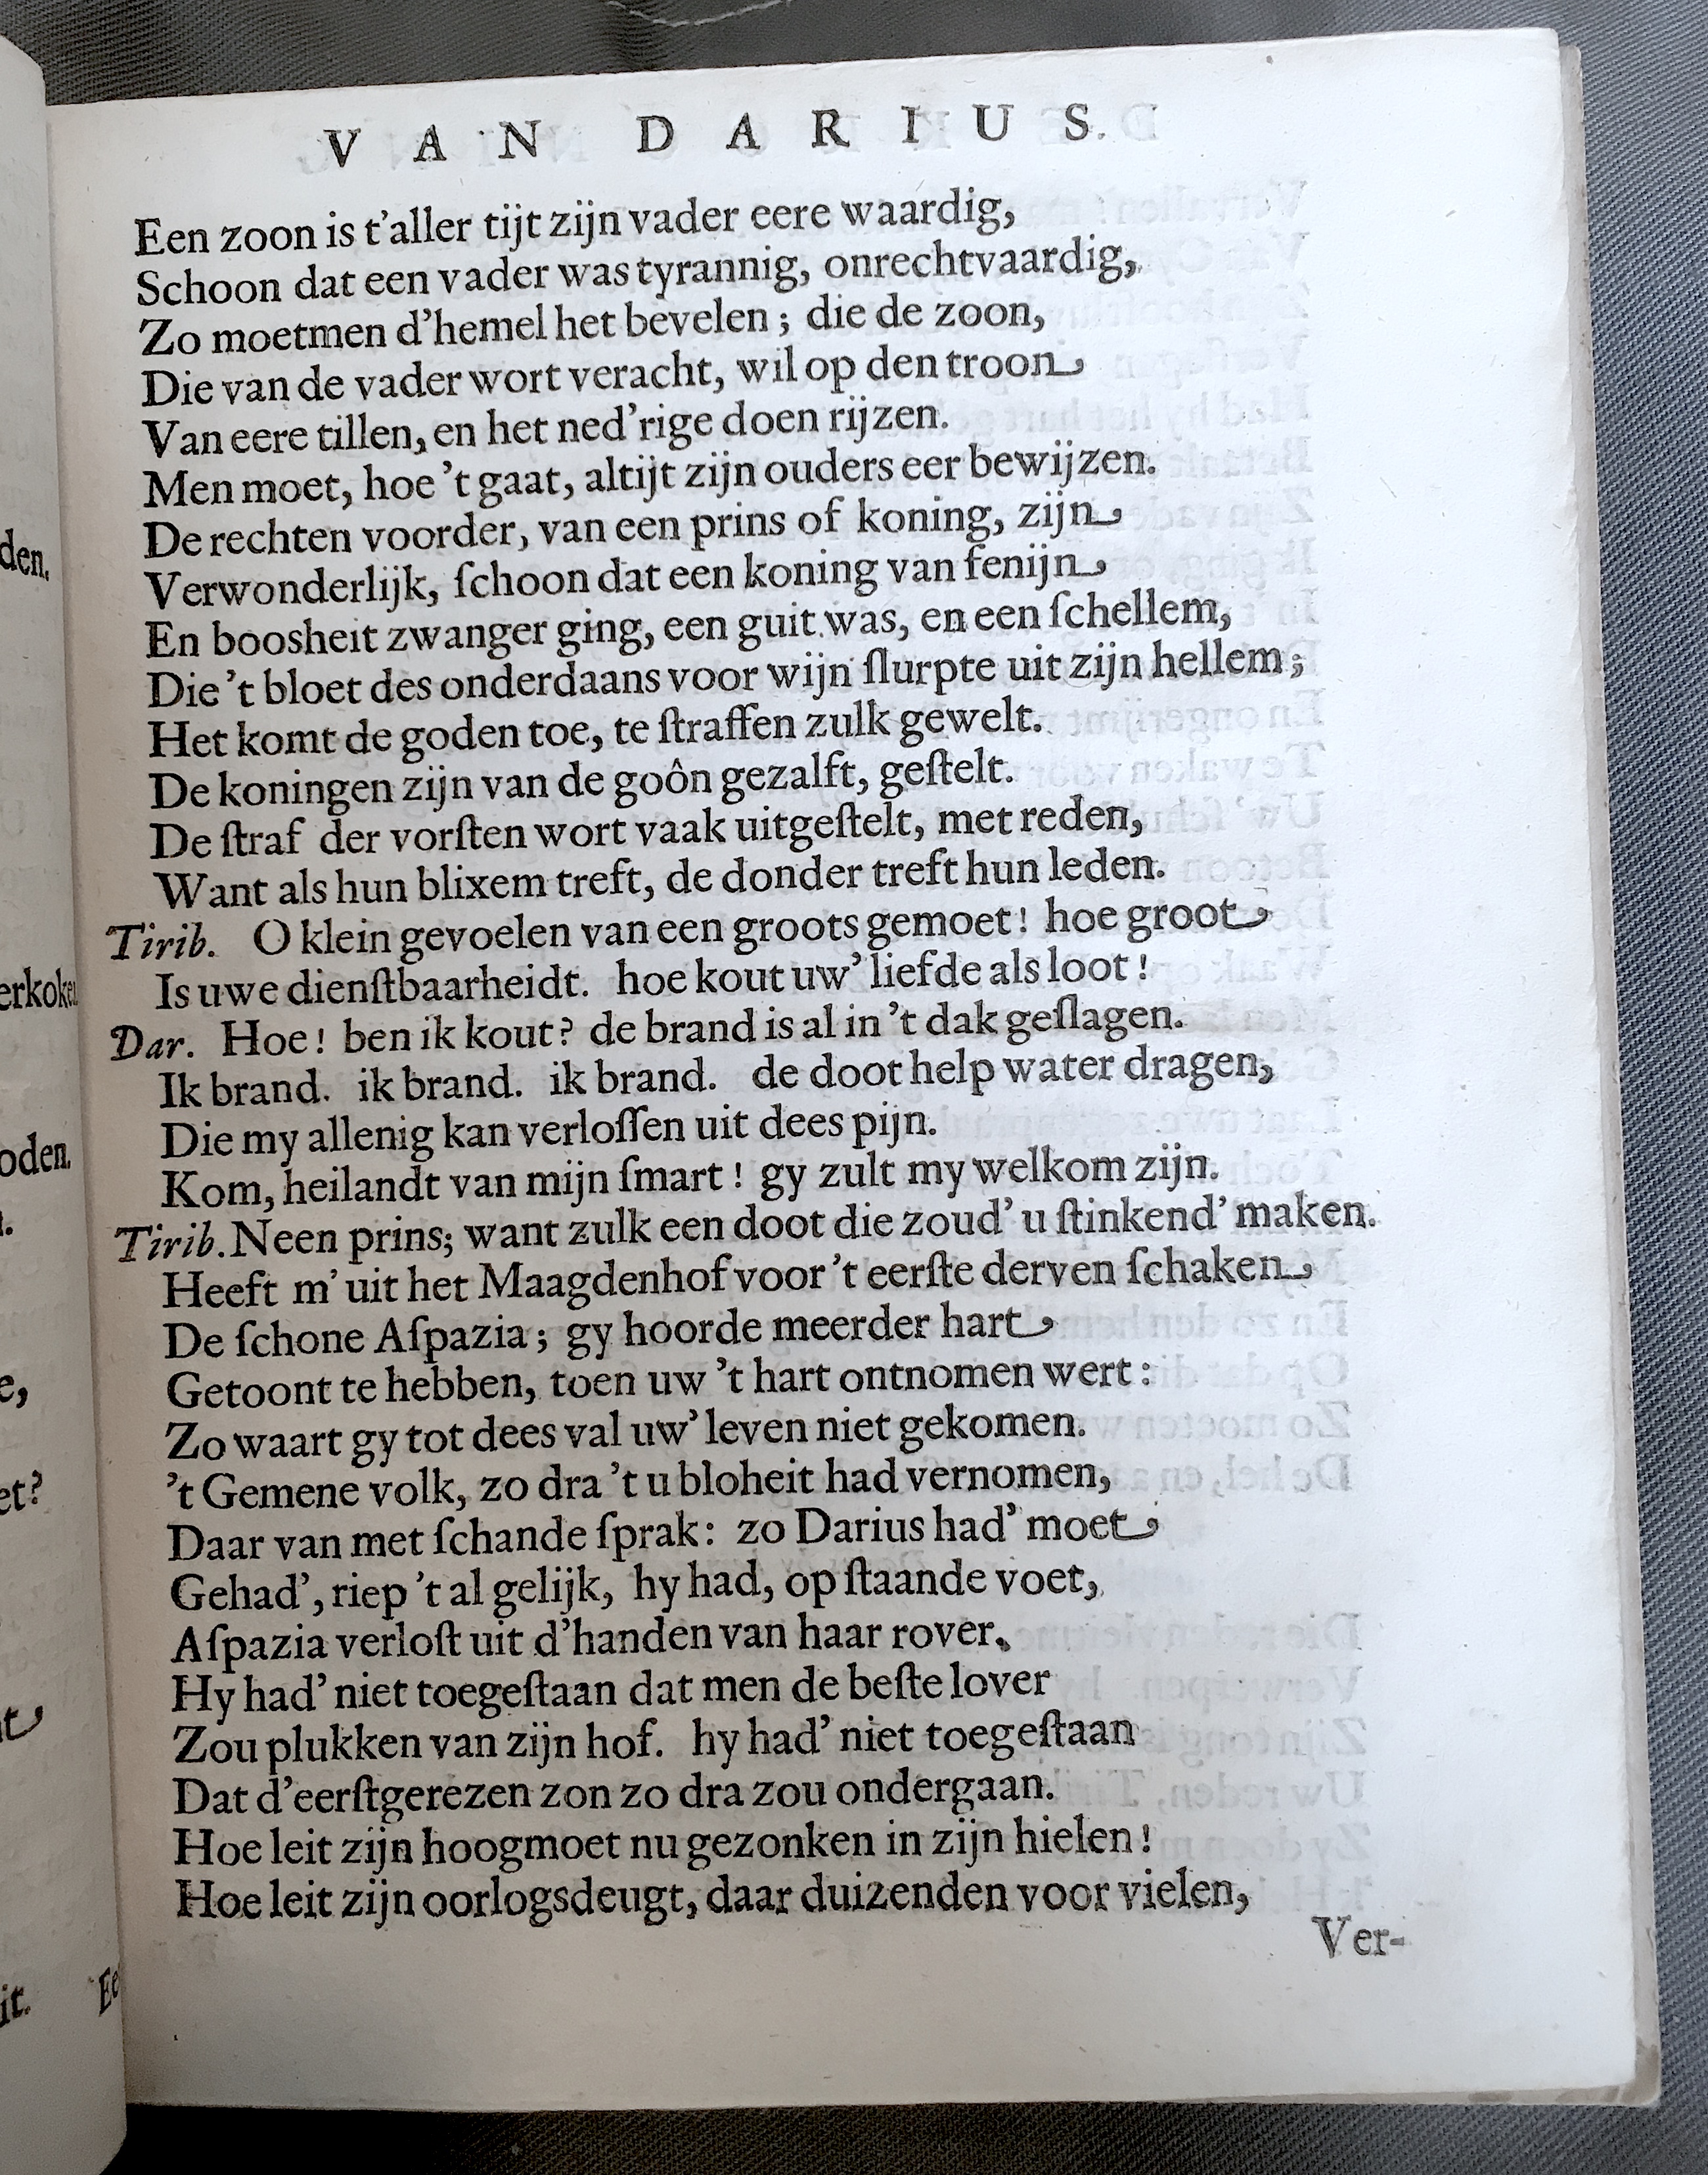 VAN DARIUS.
Een zoon is t'aller tijt zijn vader eere waardig,
Schoon dat een vader was tyrannig, onrechtvaardig,
Zo moetmen d'hemel het bevelen; die de zoon,
Die van de vader wort veracht, wil op den troon
Van eere tillen, en het ned'rige doen rijzen.
Men moet, hoe 't gaat, altijt zijn ouders eer bewijzen.
De rechten voorder, van een prins of koning, zijn
Verwonderlijk, ſchoon dat een koning van fenijn
En boosheit zwanger ging, een guit was, en een ſchellem,
Die 't bloet des onderdaans voor wijn ſlurpte uit zijn hellem;
Het komt de goden toe, te ſtraffen zulk gewelt.
De koningen zijn van de goôn gezalft, geſtelt.
De ſtraf der vorſten wort vaak uitgeſtelt, met reden,
Want als hun blixem treft, de donder treft hun leden.
Tirib. O klein gevoelen van een groots gemoet! hoe groot
Is uwe dienſtbaarheidt. hoe kout uw' liefde als loot!
Dar. Hoe! ben ik kout? de brand is al in 't dak geſlagen.
Ik brand. ik brand. ik brand. de doot help water dragen,
Die my allenig kan verloſſen uit dees pijn.
Kom, heilandt van mijn ſmart! gy zult my welkom zijn.
Tirib. Neen prins; want zulk een doot die zoud' u ſtinkend' maken.
Heeft m' uit het Maagdenhof voor 't eerſte derven ſchaken
De ſchone Aſpazia; gy hoorde meerder hart
Getoont te hebben, toen uw 't hart ontnomen wert:
Zo waart gy tot dees val uw' leven niet gekomen.
't Gemene volk, zo dra 't u bloheit had vernomen,
Daar van met ſchande ſprak: zo Darius had' moet
Gehad', riep 't al gelijk, hy had, op ſtaande voet,
Aſpazia verloſt uit d'handen van haar rover.
Hy had' niet toegeſtaan dat men de beſte lover
Zou plukken van zijn hof. hy had' niet toegeſtaan
Dat d'eerſtgerezen zon zo dra zou ondergaan.
Hoe leit zijn hoogmoet nu gezonken in zijn hielen!
Hoe leit zijn oorlogsdeugt, daar duizenden voor vielen,
Ver-